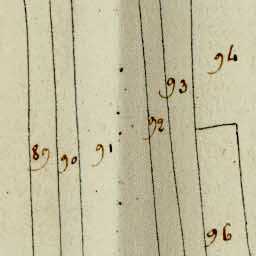 94
93
92
91
89
90
96